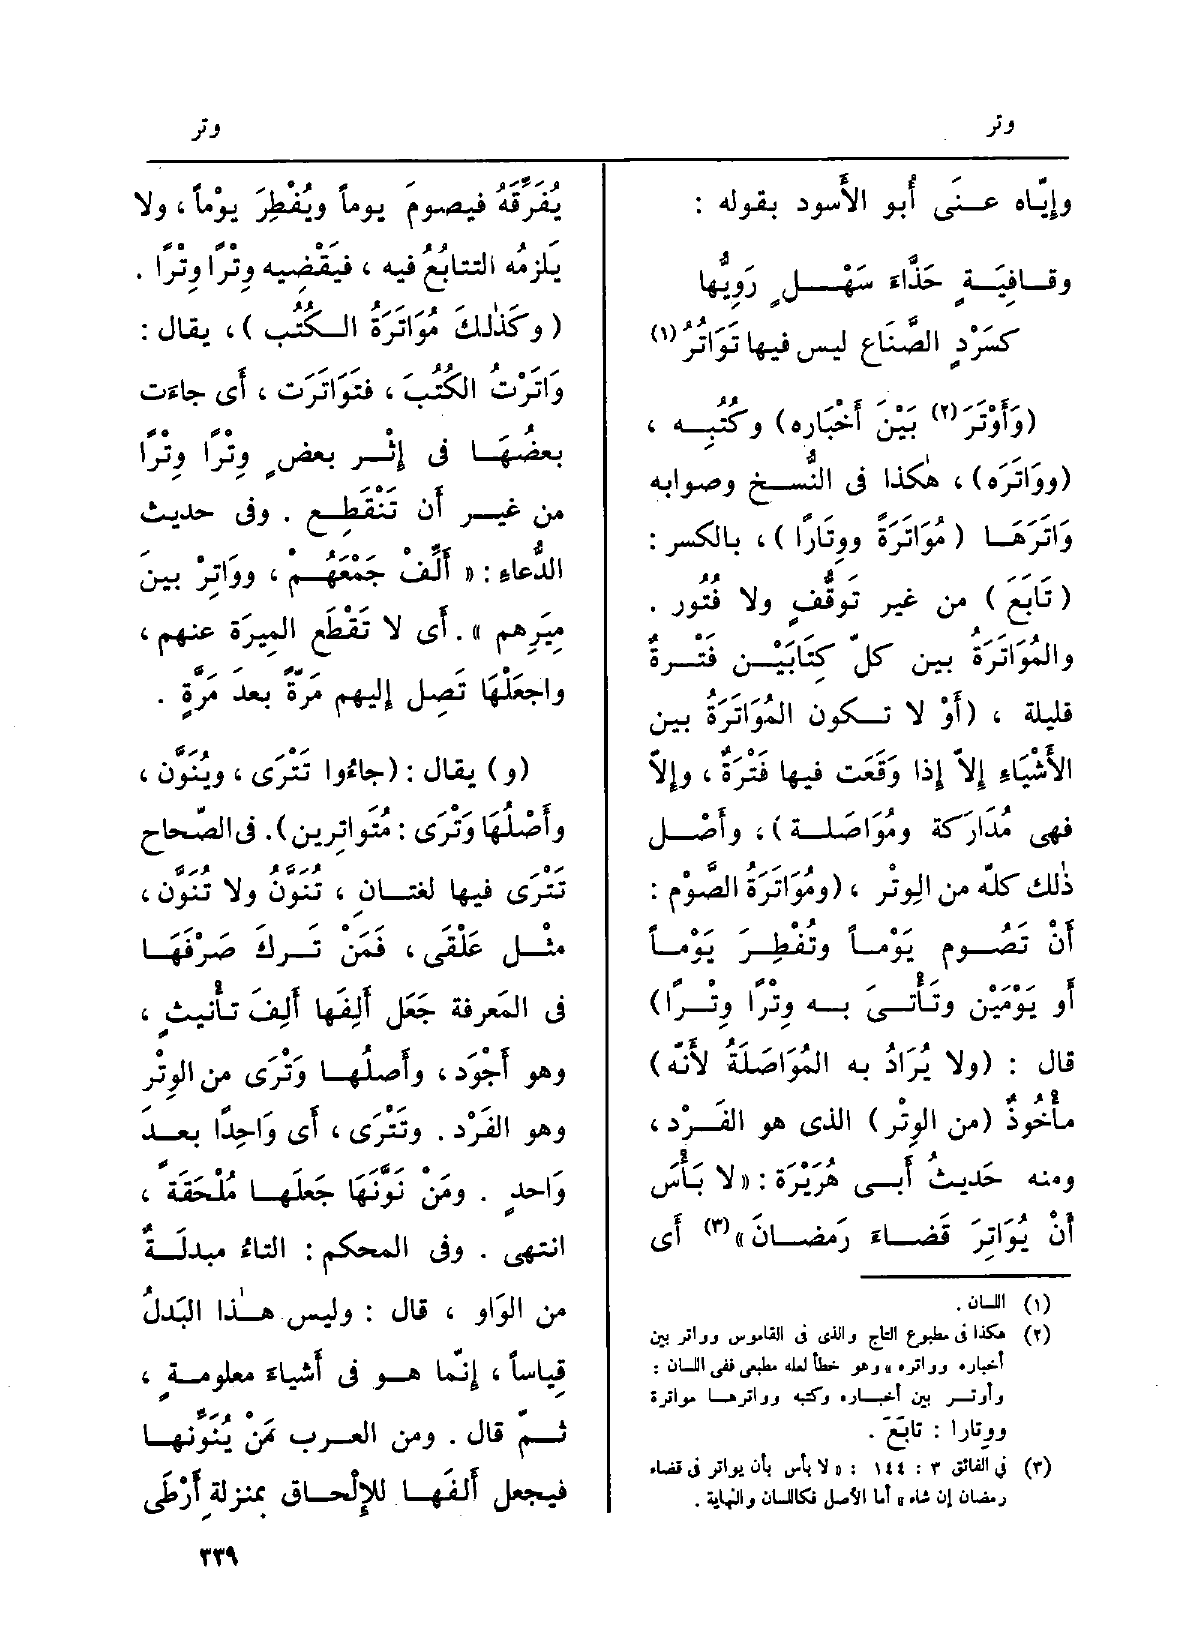 وتر
وتر
وإيّاه عنَى أَبو الأَسود بقوله :
وقافِيَةٍ حَذَّاءَ سَهْلٍ رَوِيُّها
كسَرْدِ الصَّنَاع ليس فيها تَوَاتُرُ (١)
(وَأَوْتَرَ (٢) بَيْنَ أَخْبَاره) وكُتُبِه ،
(ووَاتَرَه) ، هٰكذا فى النُّسخ وصوابه
وَاتَرَهَا (مُوَاتَرَةً ووِتَارًا) ، بالكسر :
(تَابَعَ) من غير تَوقُّفٍ ولا فُتُور .
والمُوَاتَرَةُ بين كلّ كِتَابَيْن فَتْرةٌ
قليلة ، (أَوْ لا تكون المُوَاتَرَةُ بين
الأَشْيَاءِ إِلاّ إِذا وَقَعَت فيها فَتْرَةٌ ، وإِلاّ
فهى مُدَارَكة ومُوَاصَلة) ، وأَصْل
ذٰلك كلّه من الوِتْر ، (ومُوَاتَرَةُ الصَّوْم :
أَنْ تَصُوم يَوْماً وتُفْطِرَ يَوْماً
أَو يَوْمَيْن وتَأْتىَ به وِتْرًا وِتْرًا)
قال : (ولا يُرَادُ به المُوَاصَلَةُ لأَنّه)
مأْخُوذٌ (من الوِتْر) الذى هو الفَرْد ،
ومنه حَديثُ أَبى هُرَيْرَة : «لا بَأْسَ
أَنْ يُوَاتِرَ قَضاءَ رَمَضانَ» (٣) أَى
(١) اللسان .
(٢) هكذا فى مطبوع التاج والذى فى القاموس وواتر بين
أخباره وواتره » وهو خطأ لعله مطبعى ففى اللسان :
وأوتر بين أخباره وكتبه وواترها مواترة
ووِتارا : تابَعَ .
(٣) فى الفائق ٣ : ١٤٤ : « لا بأس بأن يواتر فى قضاء
رمضان إن شاء » أما الأصل فكاللسان والنهاية .
يُفَرِّقَهُ فيصومَ يوماً ويُفْطِرَ يوْماً ، ولا
يَلزمُه التتابُعُ فيه ، فيَقْضِيه وِتْرًا وِتْرًا .
(وكَذٰلكَ مُوَاتَرَةُ الكُتُب) ، يقال :
وَاتَرْتُ الكُتُبَ ، فتَوَاتَرَت ، أَى جاءَت
بعضُهَا فى إِثْر بعضٍ وِتْرًا وِتْرًا
من غير أَن تَنْقَطِع . وفى حديث
الدُّعاءِ : « أَلِّفْ جَمْعَهُمْ ، ووَاتِرْ بينَ
مِيَرِهم » . أَى لا تَقْطَع المِيرَة عنهم ،
واجعَلْهَا تَصِل إِليهم مَرّةً بعدَ مَرَّةٍ .
(و) يقال : (جاءُوا تَتْرَى ، ويُنَوَّن ،
وأَصْلُها وَتْرَى : مُتَواتِرين) . فى الصّحاح
تَتْرَى فيها لغتان ، تُنَوَّنُ ولا تُنَوَّن ،
مثْل عَلْقَى ، فَمَنْ تَركَ صَرْفَهَا
فى المَعرفة جَعَل أَلِفَها أَلِفَ تأْنيثٍ ،
وهو أَجْوَد ، وأَصلُها وَتْرَى من الوِتْر
وهو الفَرْد . وتَتْرَى ، أَى وَاحِدًا بعدَ
وَاحدٍ . ومَنْ نَوَّنَهَا جَعلَها مُلْحَقَةً ،
انتهى . وفى المحكم : التاءُ مبدلَةٌ
من الوَاو ، قال : وليس هٰذا البَدلُ
قِياساً ، إِنّما هو فى أَشْيَاءَ معلومةٍ ،
ثمّ قال . ومن العرب مَنْ يُنَوِّنها
فيجعل أَلفَها للإِلْحاق بمنزلة أَرْطَى
٣٣٩